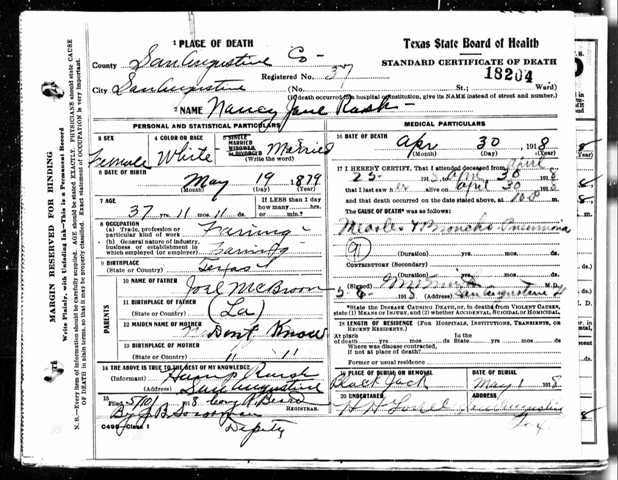 MARGIN RESERVED FOR BINDING
Write Plainly, with Unfading Ink—This is a Permanent Record
N.B.—Every item of information should be carefully supplied. AGE should be stated EXACTLY. PHYSICIANS should state CAUSE
OF DEATH in plain terms, so that it may be properly classified. Exact statement of OCCUPATION is very important.
1 PLACE OF DEATH
County San Augustine Co
City San Augustine
Texas State Board of Health
STANDARD CERTIFICATE OF DEATH
Registered No. 37
18204
(No. St.; Ward)
(If death occurred in a hospital or institution, give its NAME instead of street and number.)
2 NAME Nancy Jane Rash
PERSONAL AND STATISTICAL PARTICULARS
3 SEX
Female
4 COLOR OR RACE
White
5 SINGLE
MARRIED
WIDOWED
OR DIVORCED
Married
(Write the word)
6 DATE OF BIRTH
May 19 1879
(Month) (Day) (Year)
7 AGE
37 yrs. 11 mos. 11 ds.
If LESS than 1 day
how many hrs.
or min.?
8 OCCUPATION
(a) Trade, profession or
particular kind of work
Farming
(b) General nature of industry,
business or establishment in
which employed (or employer)
Farming
9 BIRTHPLACE
(State or Country) Texas
PARENTS
10 NAME OF FATHER Joel McBroom
11 BIRTHPLACE OF FATHER
(State or Country) (La)
12 MAIDEN NAME OF MOTHER
Dont Know
13 BIRTHPLACE OF MOTHER
(State or Country) " "
14 THE ABOVE IS TRUE TO THE BEST OF MY KNOWLEDGE
(Informant)
(Address) San Augustine
15
Filed 5/10 1918
REGISTRAR.
By J B
Deputy
C499—Class 1
MEDICAL PARTICULARS
16 DATE OF DEATH
Apr 30 1918
(Month) (Day) (Year)
17 I HEREBY CERTIFY, That I attended deceased from April
25 1918, Apr 30 1918
that I last saw her alive on April 30 1918
and that death occurred on the date stated above, at
The CAUSE OF DEATH* was as follows:
Measles & Broncho Pneumonia
91
(Duration) yrs. mos. ds.
CONTRIBUTORY (Secondary)
(Duration) yrs. mos. ds.
(Signed) M.D.
5-6 1918 (Address) San Augustine
*STATE the DISEASE CAUSING DEATH, or, in deaths from VIOLENT CAUSES,
state (1) MEANS OF INJURY, and (2) whether ACCIDENTAL, SUICIDAL or HOMICIDAL.
18 LENGTH OF RESIDENCE (FOR HOSPITALS, INSTITUTIONS, TRANSIENTS, OR
RECENT RESIDENTS.)
At place
of death yrs. mos. ds. State yrs. mos. ds.
Where was disease contracted,
if not at place of death?
Former or usual residence
19 PLACE OF BURIAL OR REMOVAL
Black Jack
DATE OF BURIAL
May 1 1918
20 UNDERTAKER
ADDRESS
San Augustine